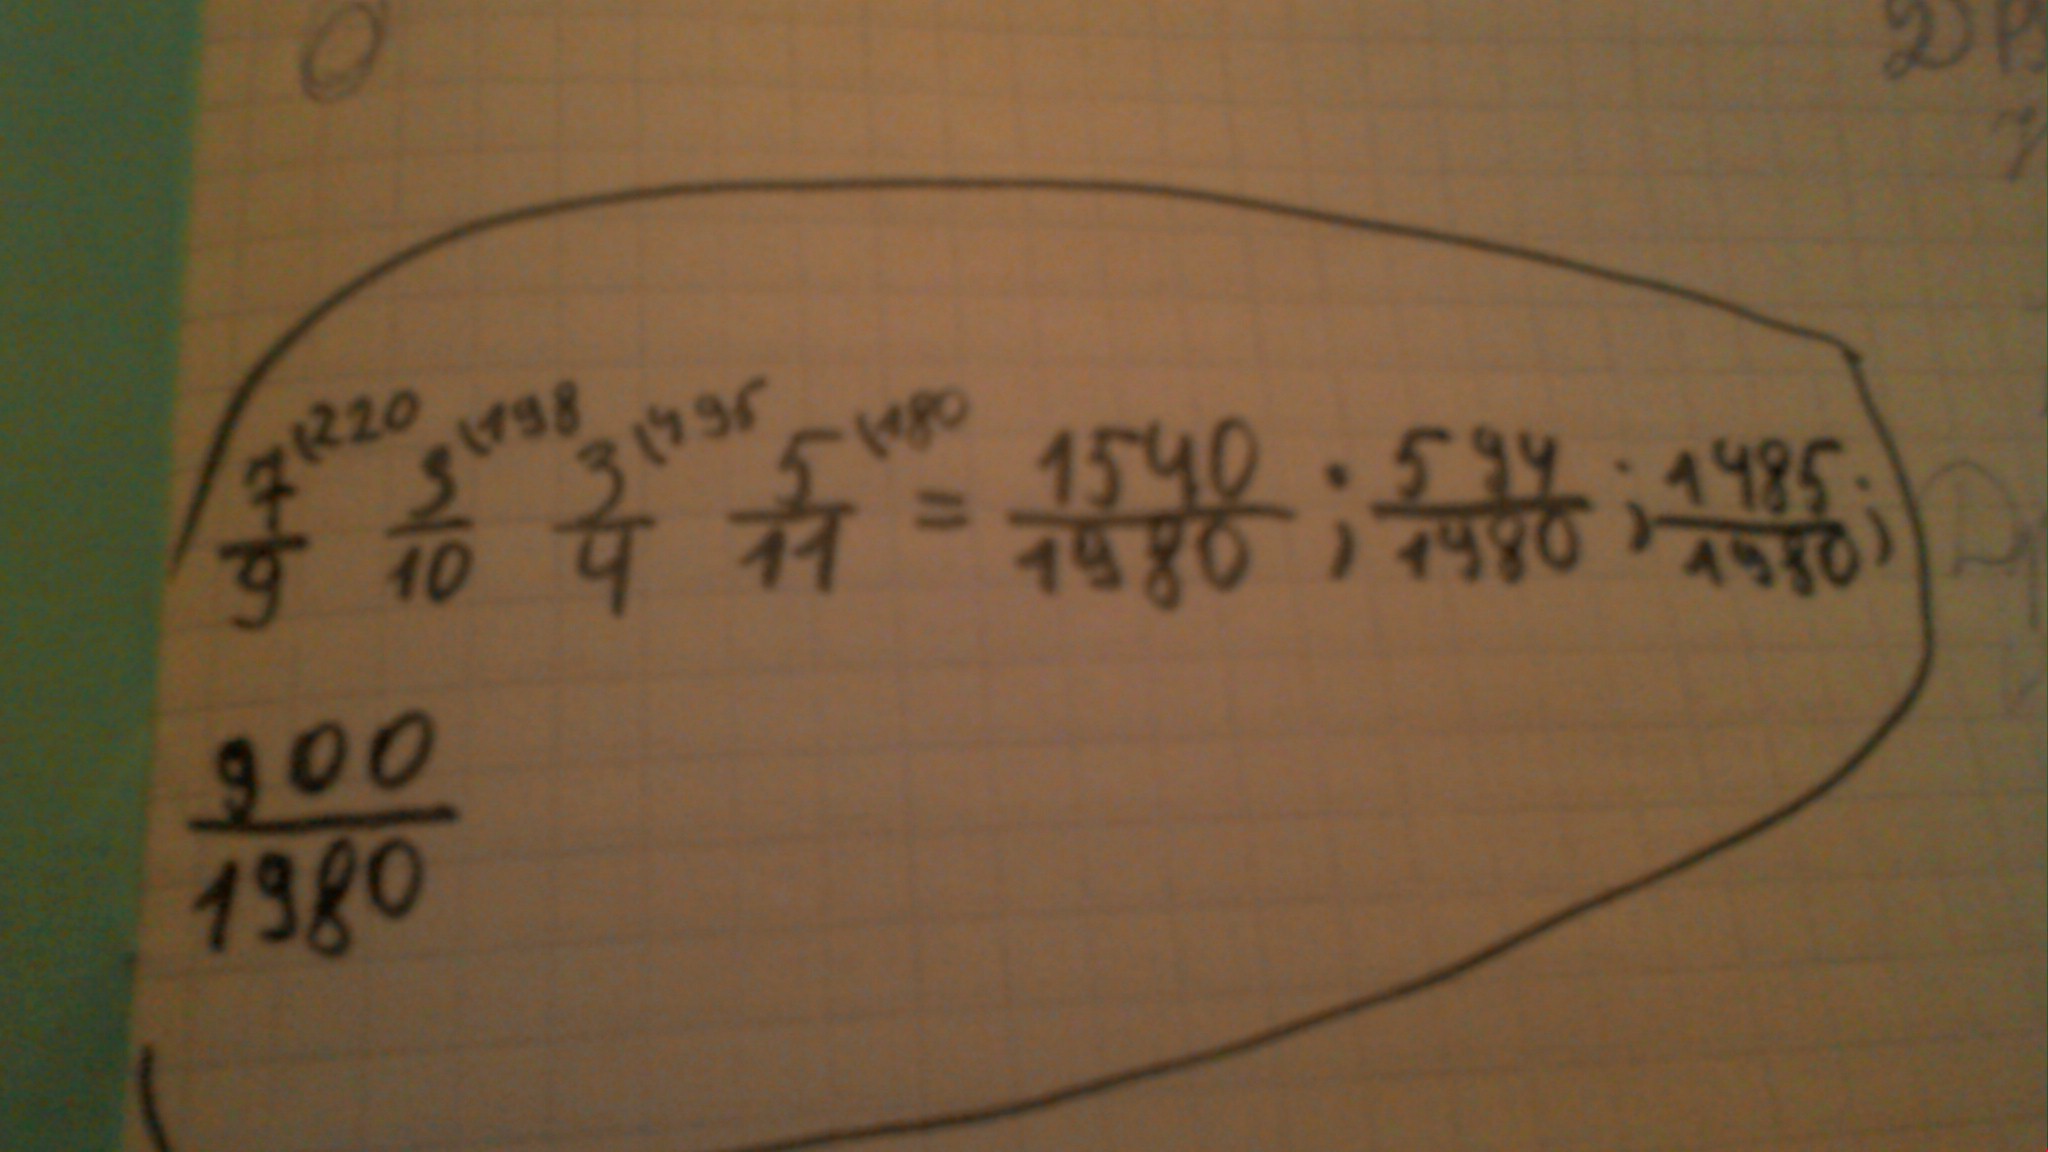 7/9 \220 3/10 \198 3/4 \495 5/11 \180 = 1540/1980 ; 594/1980 ; 1485/1980 ;
900/1980